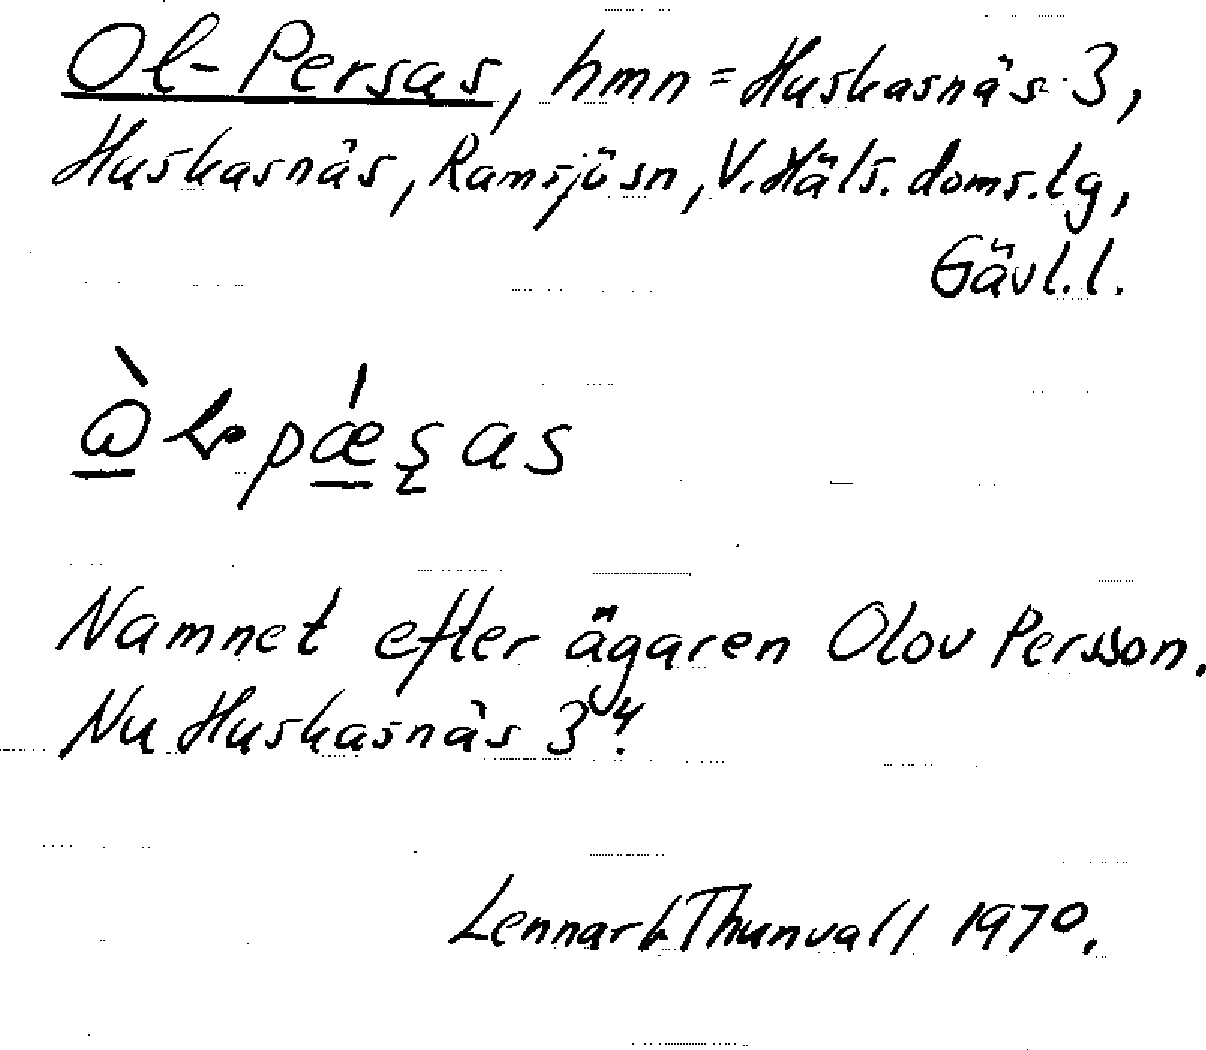 Ol-Persas, hmn = Huskasnäs 3,
Huskasnäs, Ramsjö sn, V. Häls. doms.lg,
Gävl. l.
Namnet efter ägaren Olov Persson.
Nu Huskasnäs 3⁴.
Lennart Thunvall 1970.